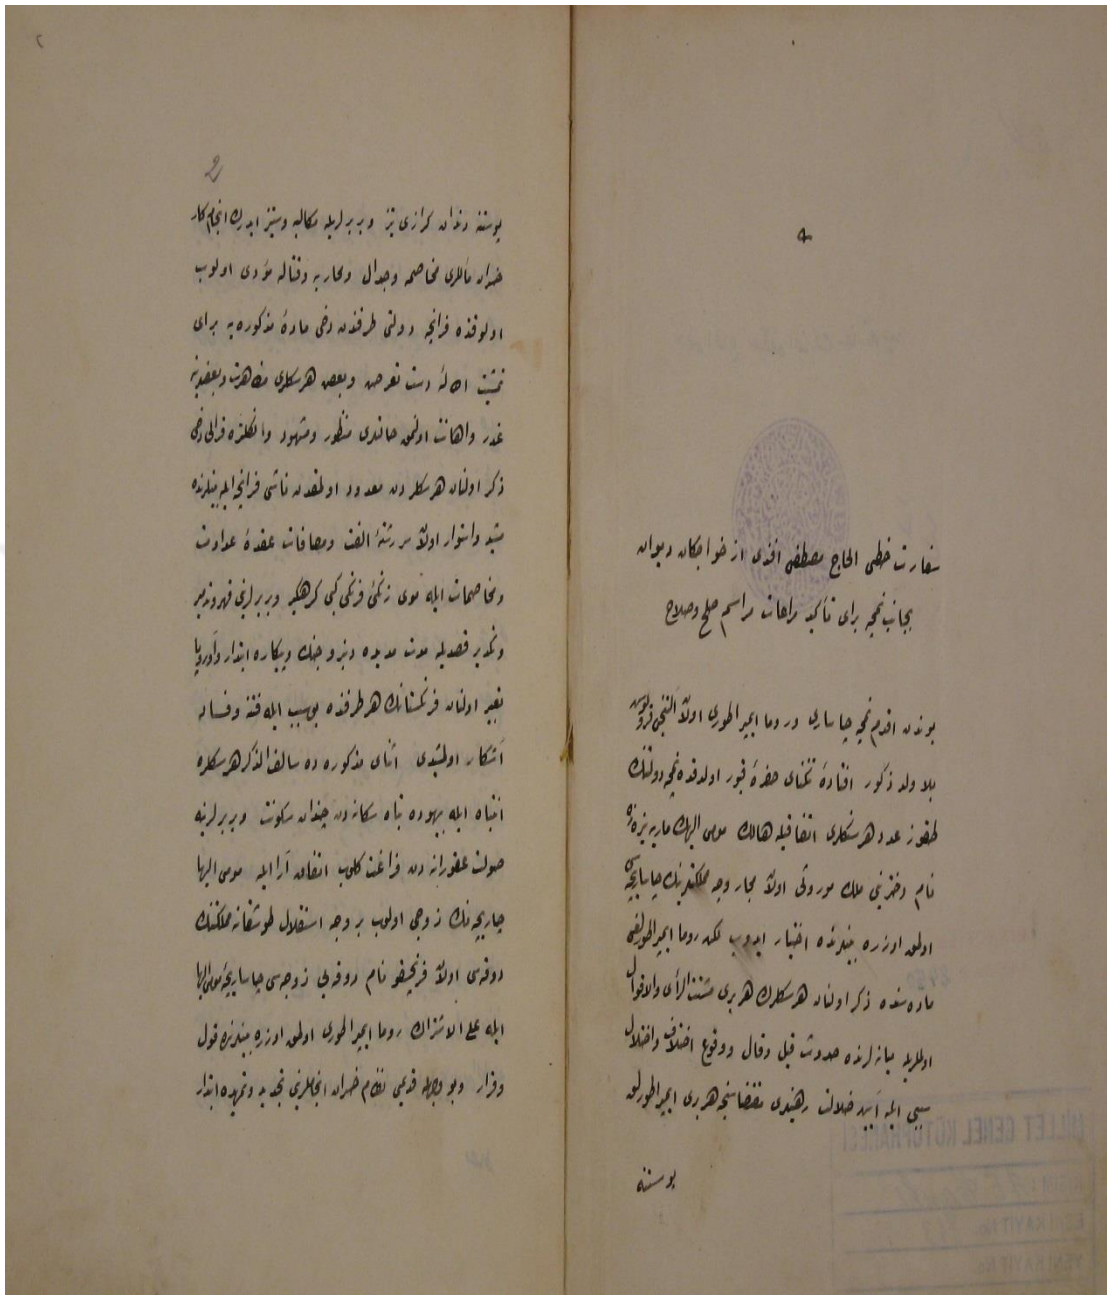 سفارت خطى الحاج مصطفى افندى از خواجكان ديوان
بجانب نمچه براى تأكيد مراعات مراسم صلح وصلاح
بوندن اقدم نمچه چاسارى و روما ايمپراطورى اولان التنجى قرولوس
بلا ولد ذكور افتادهٔ تنكناى حفرهٔ قبور اولدقده نمچه دولتنك
طقوز عدد هرسكلرى اتفاقيله هالك مومى اليهك ماريه تره زه
نام دخترينى ملك موروثى اولان مجار وچه مملكتلرينك چاساريچه سى
اولمق اوزره بينلرنده اختيار ايدوب لكن روما ايمپراطورلغى
ماده سنده ذكر اولنان هرسكلرك هر برى مشتت الرأى والاقوال
اولملريله ميانه لرنده حدوث قيل وقال ووقوع اختلاف واختلال
سببى ايله آيين ضلالت رهينلرى مقتضاسنجه هر برى ايمپراطورلق
پوستنه
2
پوستنه دندان كرازى تيز وبربرلريله مكالبه وستيز ايدرك انجام كار
خسران مآللرى مخاصمه وجدال ومحاربه وقتاله مؤدى اولوب
اولوقتده فرانچه دولتى طرفندن دخى مادهٔ مذكوره يه براى
تمشيت اطالهٔ دست تعرض وبعض هرسكلرى مظاهرت وبعضينه
غدر واهانت اولنمق حالتلرى منظور ومشهود وانكلتره قرالى دخى
ذكر اولنان هرسكلردن معدود اولمغدن ناشى فرانچه ايله بينلرنده
مشيد واستوار اولان سررشتهٔ الفت ومصافات عقدهٔ عداوت
ومخاصمات ايله موى زنكئ فرنكى كبى كرهكير وبربرلرينى قهر وتدمير
وتكدير قصديله مدت مديده دنبرو جنك وپيكاره ابتدار وآوروپا
تعبير اولنان فرنكستانك هر طرفنده بو سبب ايله فتنه وفساد
آشكار اولمشيدى اثناى مذكوره ده سالف الذكر هرسكلره
انتباه ايله بيهوده تباه سكانه دن چندان سكونت وبربرلرينه
صولت عقورانه دن فراغت كلوب اتفاق آرا ايله مومى اليها
چاريچه نك زوجى اولوب بر وجه استقلال طوسقانه مملكتنك
دوقه سى اولان فرنچيسقو نام دوقه يى زوجه سى چاساريچهٔ مومى اليها
ايله على الاشتراك روما ايمپراطورى اولمق اوزره بينلرنده قول
وقرار وبو وجهله قديمى نظام خسران انجاملرينى تجديد وتمهيده ابتدار